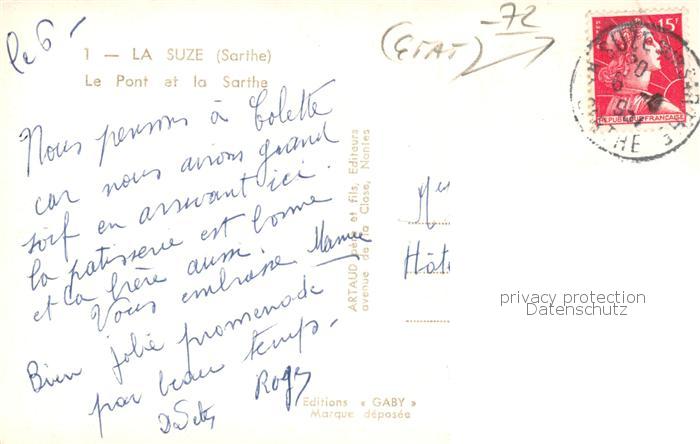 le 6-
1 — LA SUZE (Sarthe)
Le Pont et la Sarthe
(ETAT) -72
15F
LA SUZE S SARTHE
SARTHE
REPUBLIQUE FRANCAISE
Nous pensons à Colette
car nous avions grand
soif en arrivant ici.
la patisserie est bonne
et la bière aussi.
Vous embrasse Mamie
Bien jolie promenade
par beau temps-
Roger
ARTAUD père et fils, Editeurs
avenue de la Close, Nantes
Editions « GABY »
Marque déposée
Hôte
privacy protection
Datenschutz